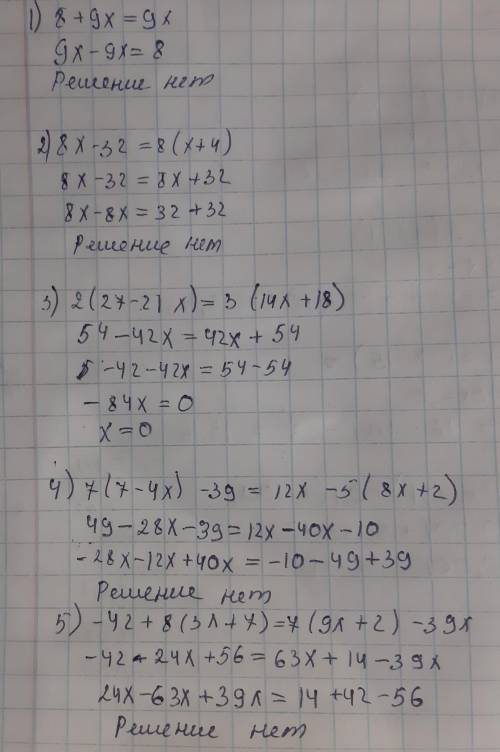 1) 8 + 9x = 9x
9x - 9x = 8
Решение нет
2) 8x - 32 = 8 (x+4)
8x - 32 = 8x + 32
8x - 8x = 32 + 32
Решение нет
3) 2 (27 - 21 x) = 3 (14x + 18)
54 - 42x = 42x + 54
-42 - 42x = 54 - 54
- 84x = 0
x = 0
4) 7 (7 - 4x) - 39 = 12x - 5 (8x + 2)
49 - 28x - 39 = 12x - 40x - 10
- 28x - 12x + 40x = -10 - 49 + 39
Решение нет
5) - 42 + 8 (3x + 7) = 7 (9x + 2) - 39x
- 42 + 24x + 56 = 63x + 14 - 39x
24x - 63x + 39x = 14 + 42 - 56
Решение нет